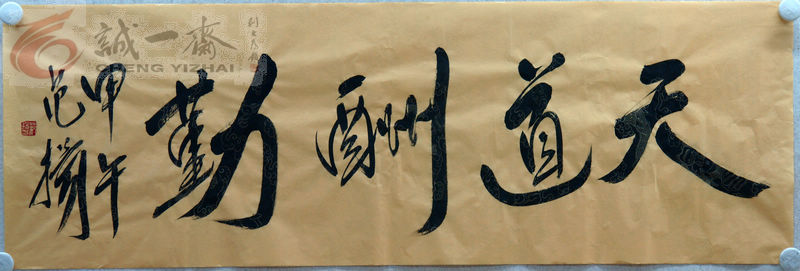 天道酬勤
甲午
范揚
誠一齋
CHENG YIZHAI